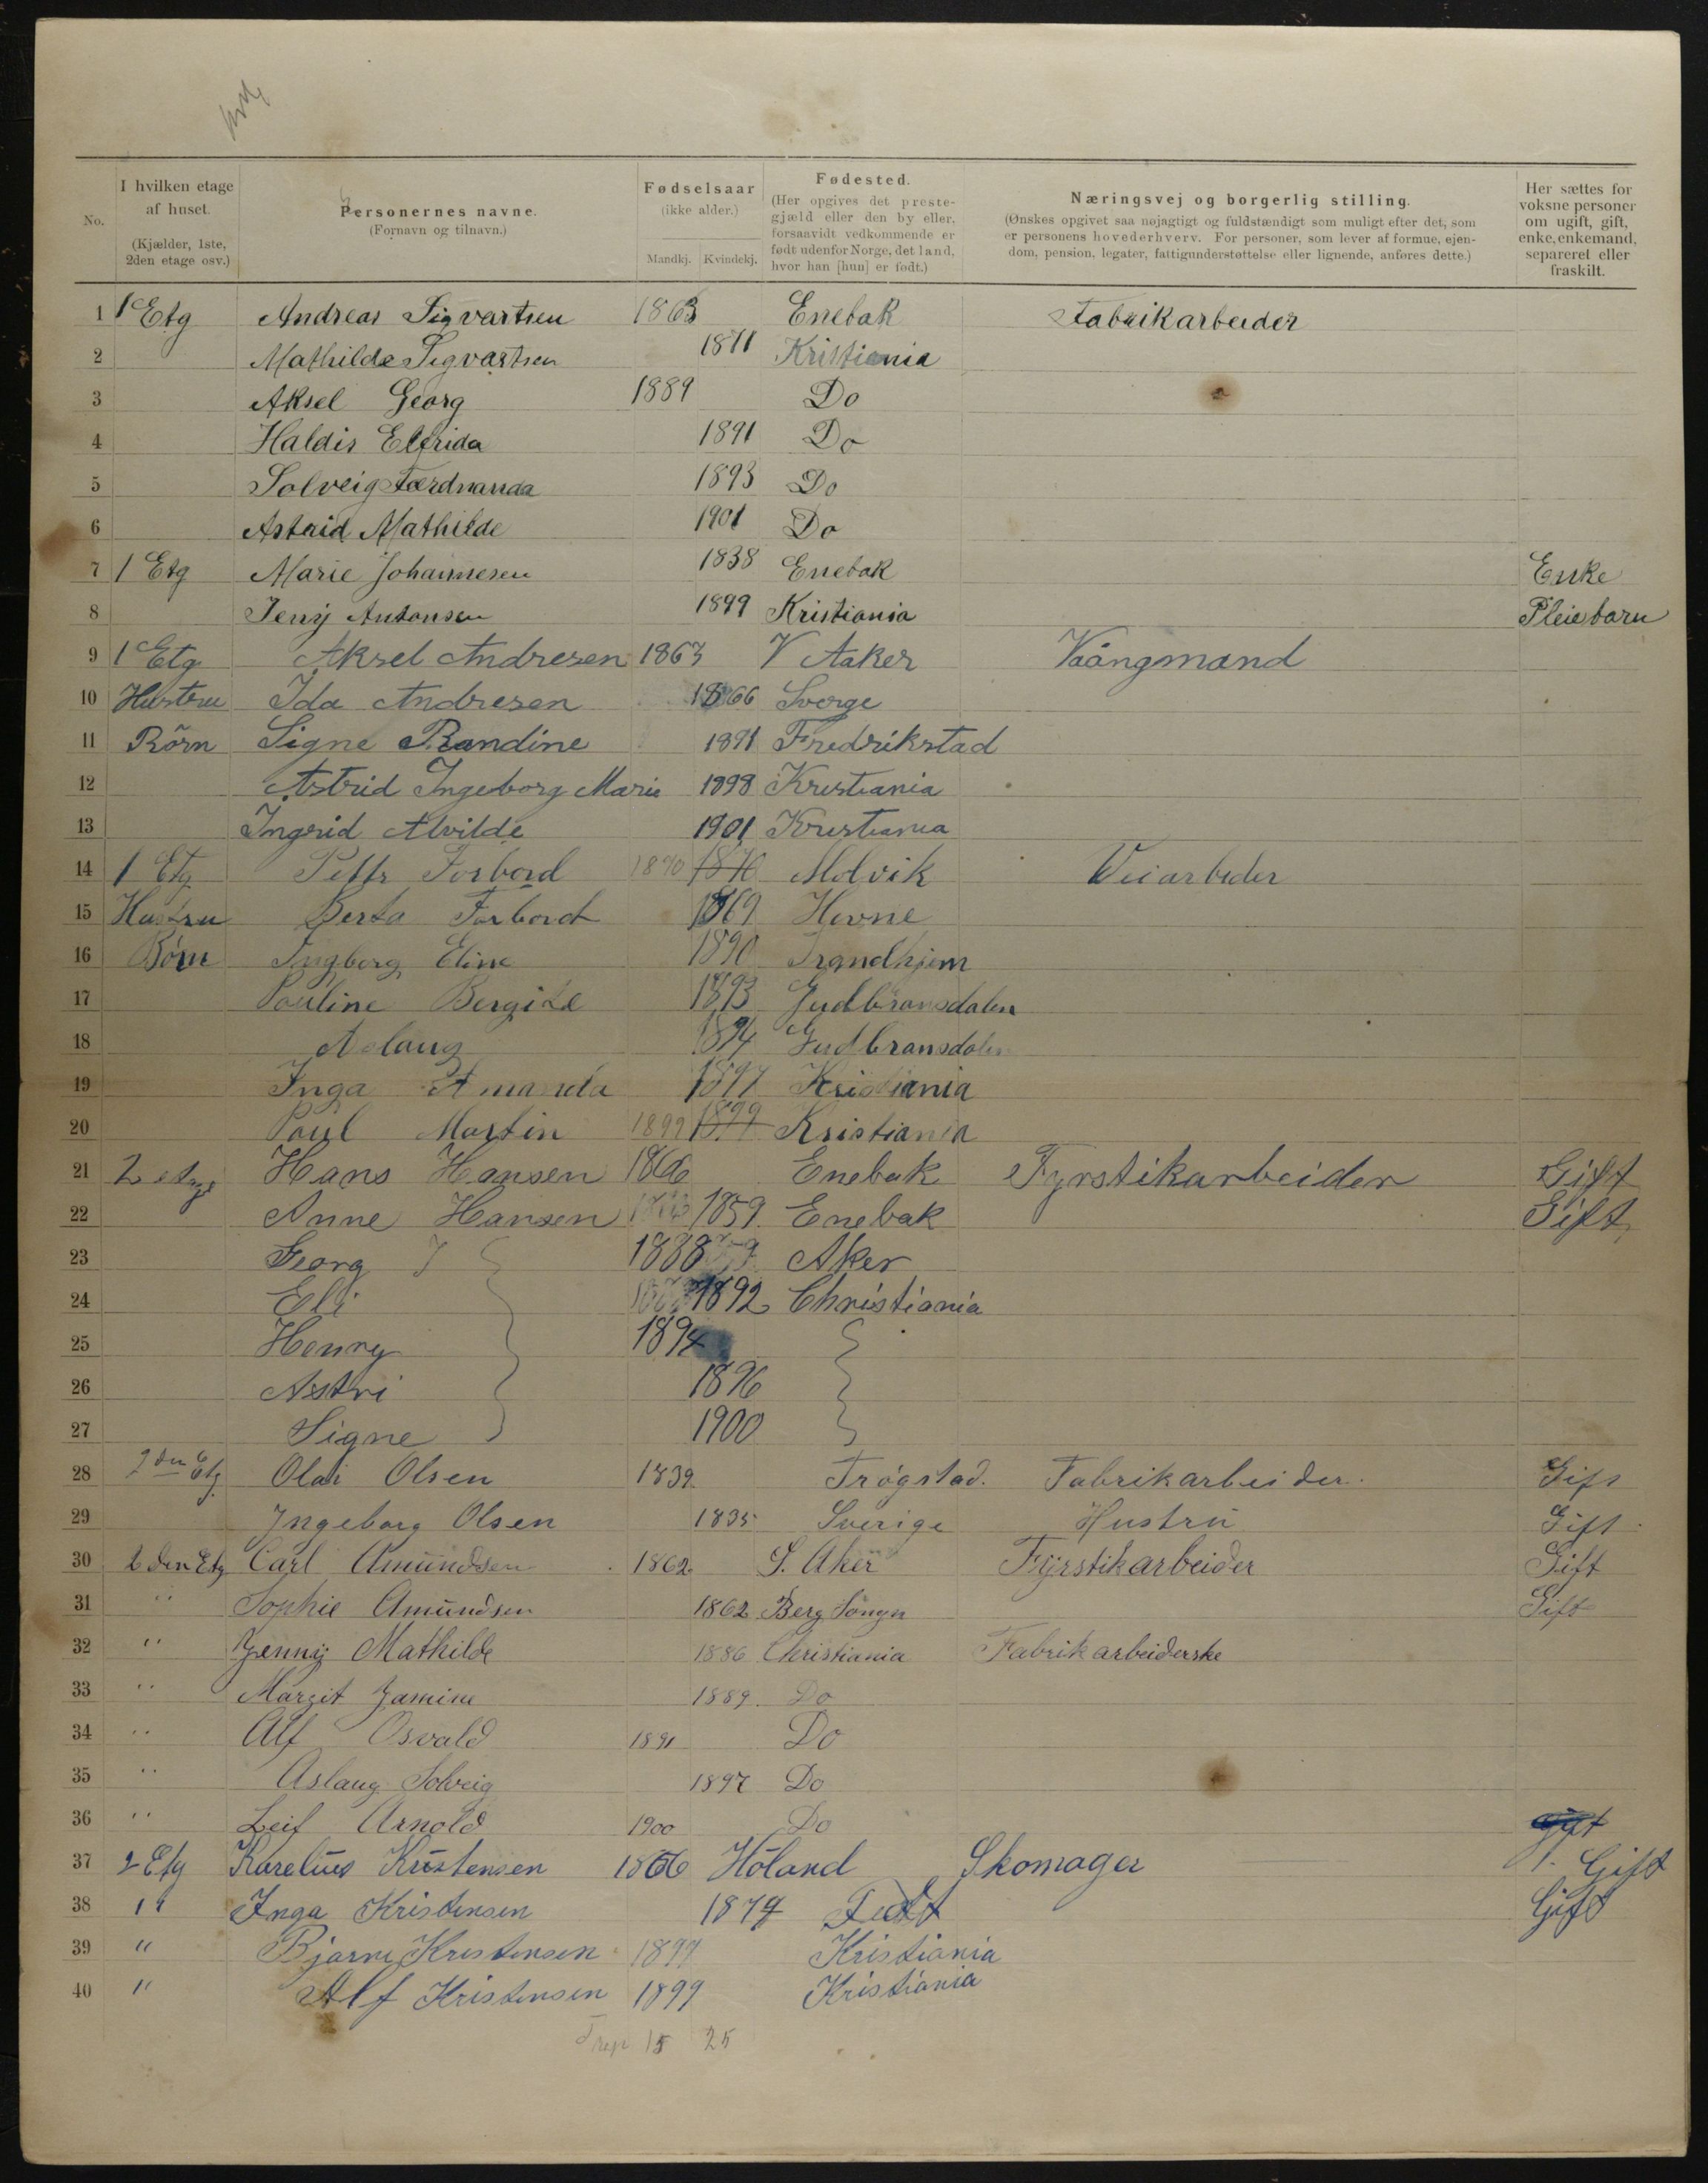 No. I hvilken etage af huset. (Kjælder, 1ste, 2den etage osv.) Personernes navne. (Fornavn og tilnavn.) Fødselsaar (ikke alder.) Mandkj. Kvindekj. Fødested. (Her opgives det prestegjæld eller den by eller, forsaavidt vedkommende er født udenfor Norge, det land, hvor han [hun] er født.) Næringsvej og borgerlig stilling. (Ønskes opgivet saa nøjagtigt og fuldstændigt som muligt efter det, som er personens hovederhverv. For personer, som lever af formue, ejendom, pension, legater, fattigunderstøttelse eller lignende, anføres dette.) Her sættes for voksne personer om ugift, gift, enke, enkemand, separeret eller fraskilt.
1 1 Etg Andreas Sigvartsen 1863 Enebak Fabrikarbeider
2 Mathilde Sigvartsen 1871 Kristiania
3 Aksel Georg 1889 Do
4 Haldis Elfrida 1891 Do
5 Solveig Færdnanda 1893 Do
6 Astrid Mathilde 1901 Do
7 1 Etg Marie Johannesen 1838 Enebak Enke
8 Jeny Antonsen 1899 Kristiania Pleiebarn
9 1 Etg Aksel Andresen 1863 V Aaker Vaångmand
10 Hustru Ida Andresen 1866 Sverge
11 Börn Signe Randine 1891 Fredrikstad
12 Astrid Ingeborg Marie 1898 Kristiania
13 Ingrid Alvilde 1901 Kristiania
14 1 Etg Petter Forbord 1870 1870 Malvik Veiarbeder
15 Hustru Berta Forbord 1869 Hevne
16 Börn Ingborg Eline 1890 Trondhjem
17 Pouline Bergite 1893 Gudbransdalen
18 Aslaug 1894 Gudbransdalen
19 Inga Amanda 1897 Kristiania
20 Poul Martin 1899 1899 Kristiania
21 2 etge Hans Hansen 1866 Enebak Fyrstikarbeider Gift
22 Anne Hansen 1859 Enebak Gift
23 Georg 1888 Aker
24 Eli 1892 Christiania
25 Henry 1894
26 Astri 1896
27 Signe 1900
28 2den Etg Olai Olsen 1839 Trøgstad. Fabrikarbeider. Gift
29 Ingeborg Olsen 1835 Sverige Hustru Gift
30 2den Etg Carl Amundsen 1862 S. Aker Fyrstikarbeider Gift
31 " Sophie Amundsen 1862 Berg Sougn Gift
32 " Jenny Mathilde 1886 Christiania Fabrikarbeiderske
33 " Margit Jamine 1889 Do
34 " Alf Osvald 1891 Do
35 " Aslaug Solveig 1897 Do
36 " Leif Arnold 1900 Do Gift
37 2 Etg Karelius Kristensen 1866 Höland Skomager Gift
38 " Inga Kristensen 1874 Fedt Gift
39 " Bjarne Kristensen 1897 Kristiania
40 " Alf Kristensen 1899 Kristiania
15 25